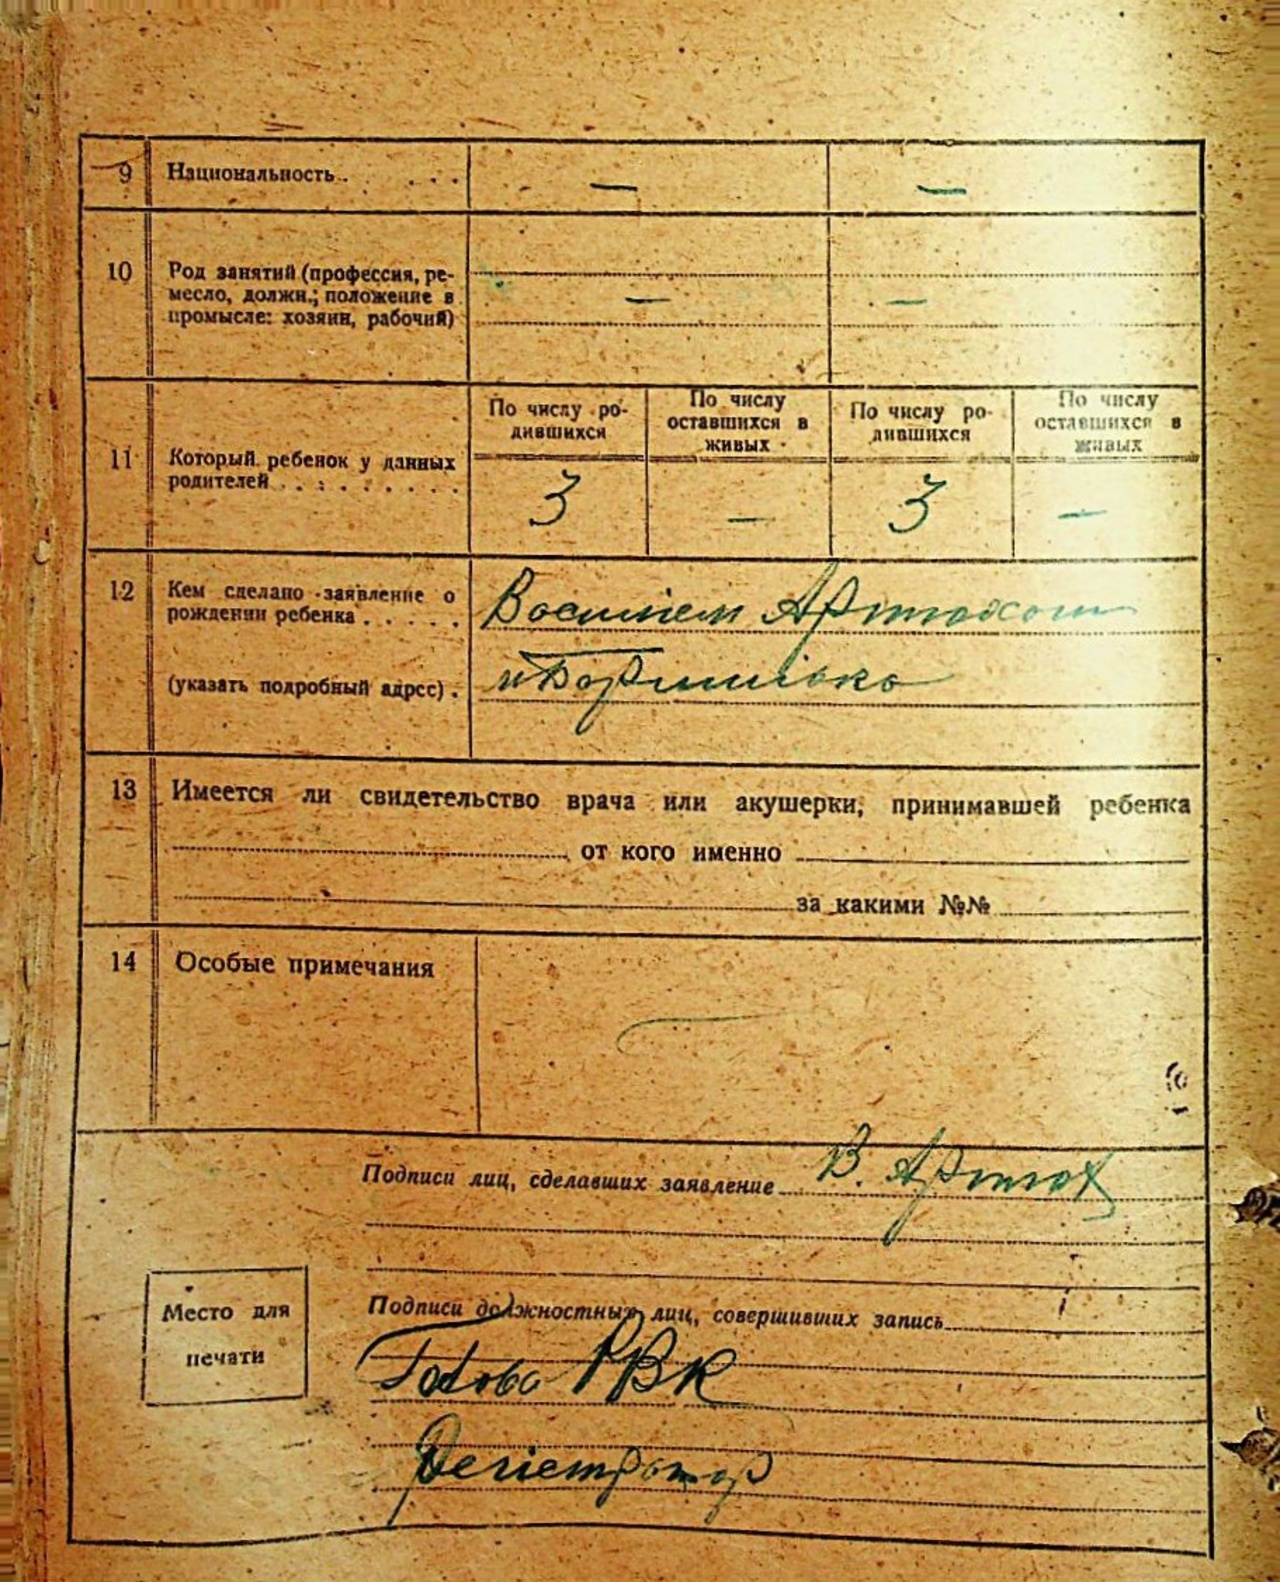 9 Национальность . . . . — —
10 Род занятий (профессия, ре-
месло, должн.; положение в — —
промысле: хозяин, рабочий)
По числу ро- По числу По числу ро- По числу
дившихся оставшихся в дившихся оставшихся в
живых живых
11 Который ребенок у данных
родителей . . . . . . . . 3 — 3 —
12 Кем сделано заявление о
рождении ребенка . . . . . Василієм Артюхом
(указать подробный адрес) .
13 Имеется ли свидетельство врача или акушерки, принимавшей ребенка
от кого именно
за какими №№
14 Особые примечания
Подписи лиц, сделавших заявление В. Артюх
Место для
печати
Подписи должностных лиц, совершивших запись
Голова РВК
Регістратор